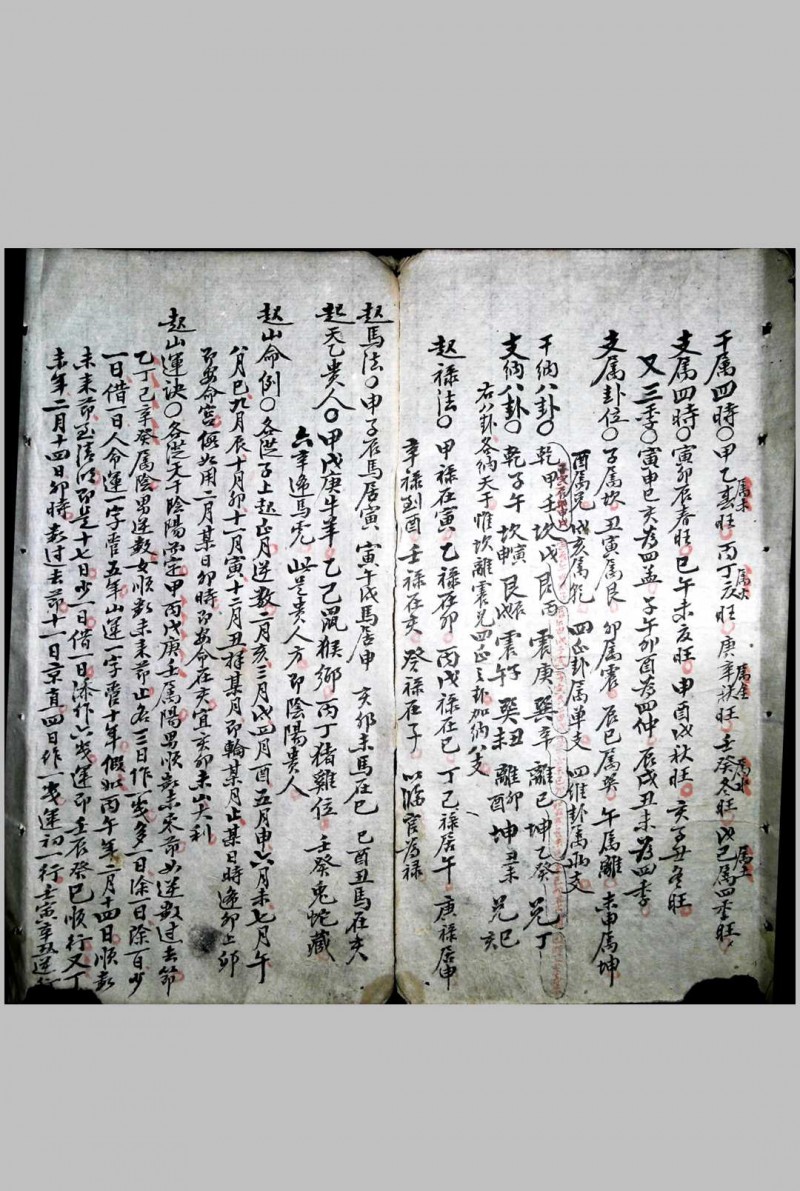 干属四時〇甲乙春旺丙丁夏旺庚辛秋旺壬癸冬旺戊己属四季旺
属木 属火 属金 属水 属土
支属四時〇寅卯辰春旺巳午未夏旺申酉戌秋旺亥子丑冬旺
又三季〇寅申巳亥為四孟子午卯酉為四仲辰戌丑未為四季
支属卦位〇子属坎丑寅属艮卯属震辰巳属巽午属離未申属坤
酉属兑戌亥属乾 四正卦属单支 四维卦属两支
干纳八卦〇乾甲壬坎戊艮丙震庚巽辛離己坤乙癸兑丁
支纳八卦〇乾子午坎申艮震巽丑離卯酉坤丑未兑巳
右八卦各纳天干惟坎離震兑四正之卦加纳八支
起禄法〇甲禄在寅乙禄在卯丙戊禄在巳丁己禄居午庚禄居申
辛禄到酉壬禄在亥癸禄在子 以臨官為禄
起馬法〇甲子辰馬居寅寅午戌馬居申亥卯未馬在巳巳酉丑馬在亥
起天乙貴人〇甲戊庚牛羊乙己鼠猴鄉丙丁猪雞位壬癸兔蛇藏
六辛逢馬虎此是貴人方即陰陽貴人
起山命例〇各從子上起正月逆数二月亥三月戌四月酉五月申六月未七月午
八月巳九月辰十月卯十一月寅十二月丑择某月即輪某月止某日時逢卯上卯
即安命宫假如用二月某日卯時即安命在亥宜亥卯未山大利
起山運訣〇各從天干陰陽而定甲丙戊庚壬属陽男順数未来節女逆数過去節
乙丁己辛癸属陰男逆数女順数未来節止名三日作一歲多一日除一日除百少
一日借一日人命運一字管五年山運一字管十年假如丙午年二月十四日順数
未来節至清明即是十七日少一日借一日添作六歲運即壬辰癸巳順行又丁
未年二月十四日卯時数过去節十一日京直四日作一歲運初一行壬寅辛丑逆行